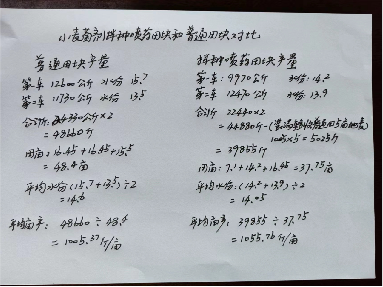 小麦菌剂拌种喷药田块和普通田块对比
普通田块产量
第一车 12600公斤 水份 15.7
第二车: 11730公斤 水份 13.5
合计: 24330公斤×2
=48660斤
田亩: 16.45+16.45+15.5
=48.4亩
平均水份 (15.7+13.5)÷2
=14.6
平均亩产: 48660÷48.4
=1005.37斤/亩
拌种喷药田块产量
第一车: 9970公斤 水份: 14.2
第二车: 12470公斤 水份: 13.9
合计 22440×2
=44880斤-(普通田5亩
1005×5=5025斤
=39855斤
田亩: 7.1+14.2+16.45=37.75亩
平均水份: (14.2+13.9)÷2
=14.05
平均亩产: 39855÷37.75
=1055.76斤/亩